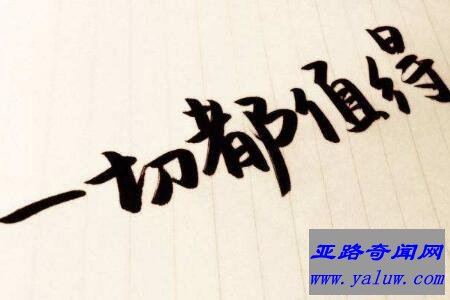 一切都值得
亚路奇闻网
www.yaluw.com